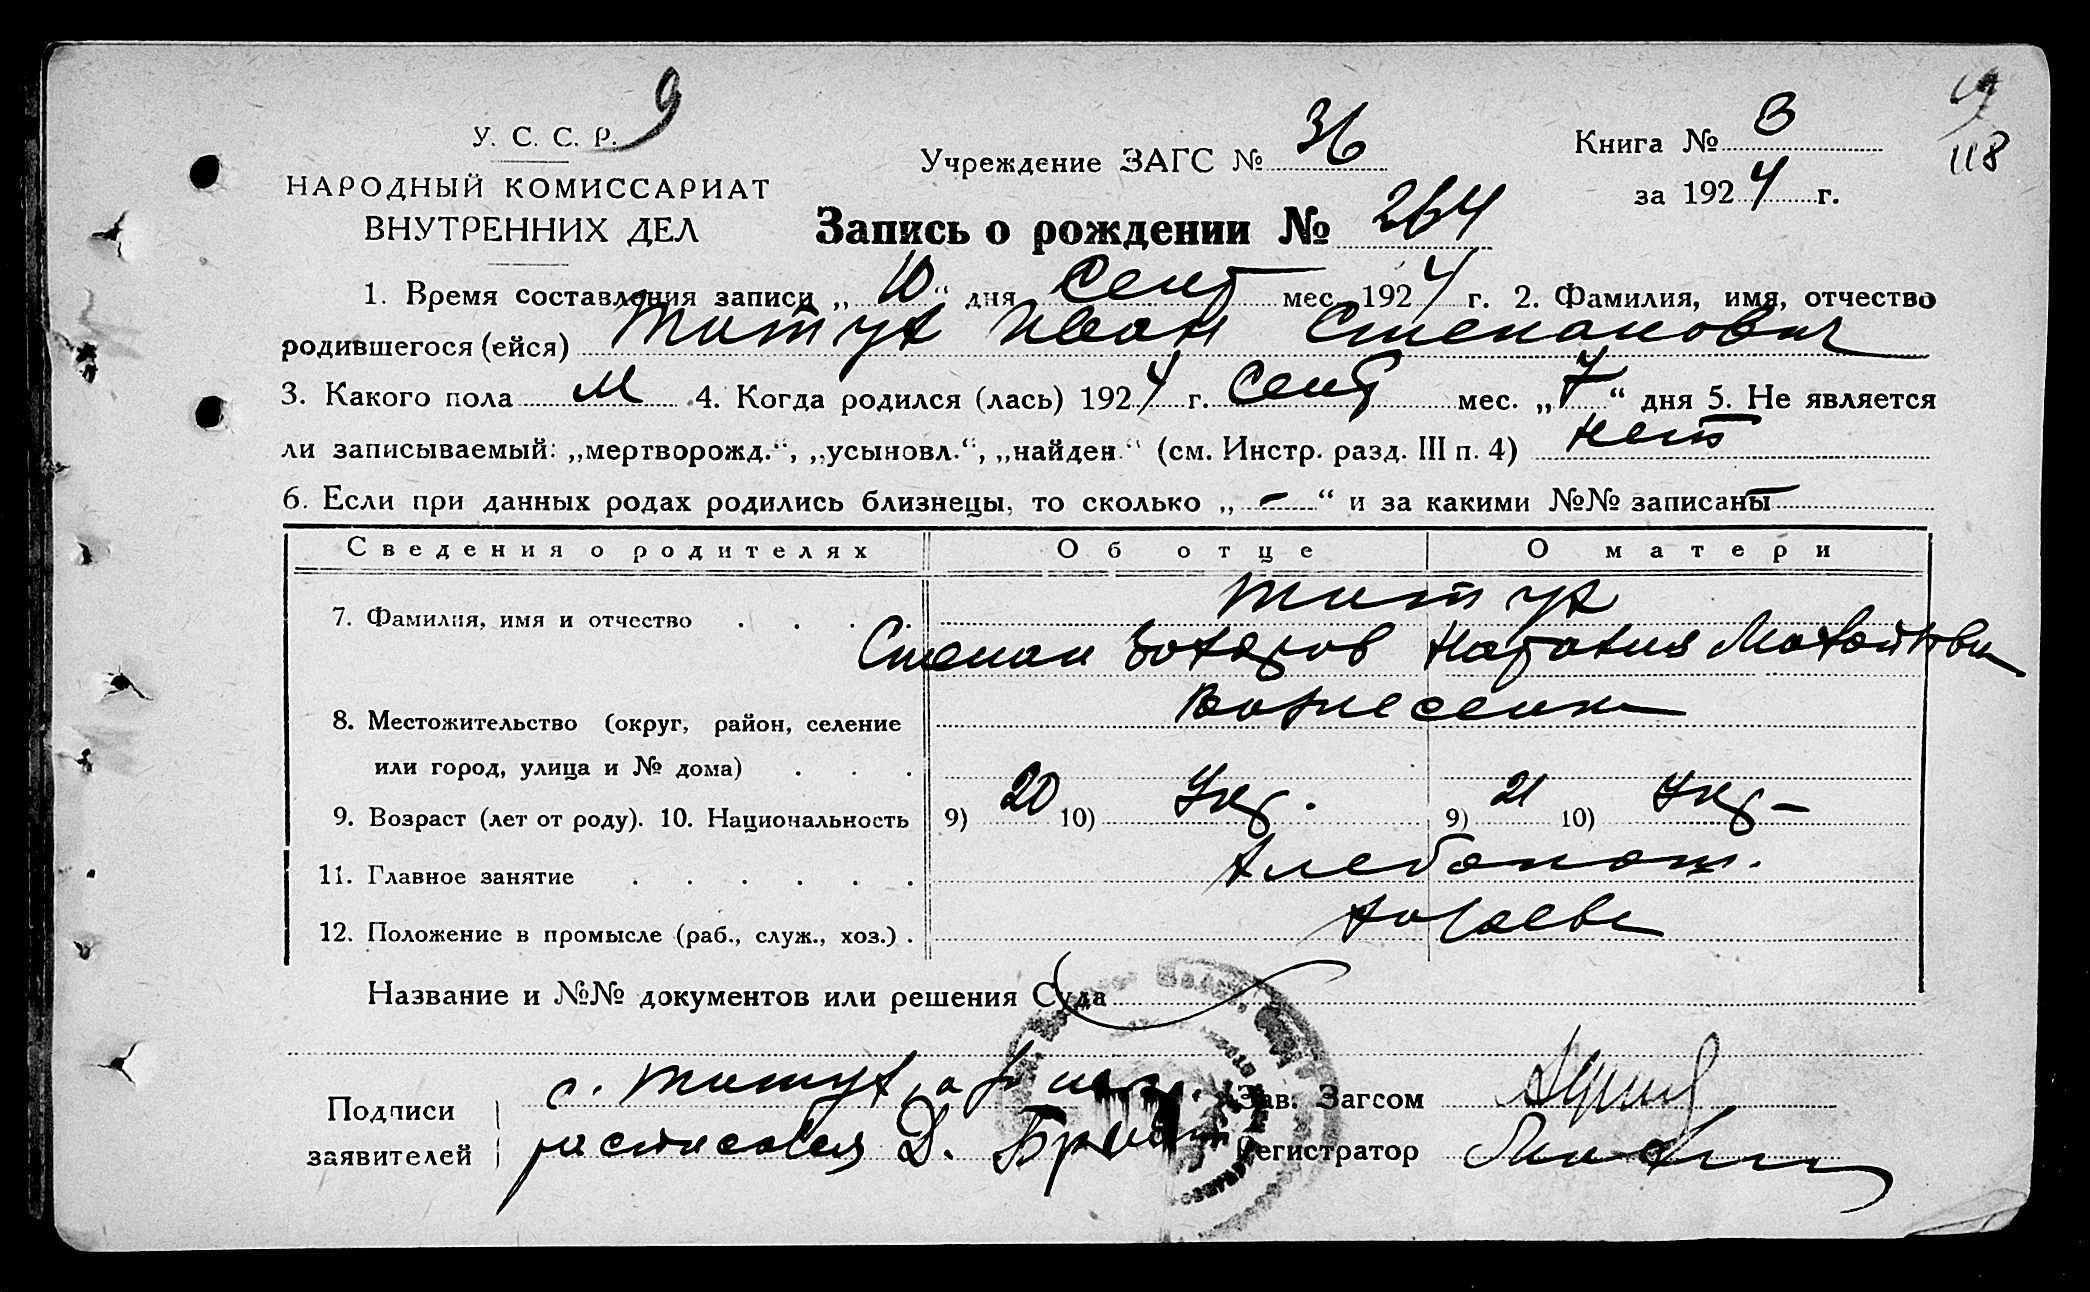 9
У. С. С. Р.
НАРОДНЫЙ КОМИССАРИАТ
ВНУТРЕННИХ ДЕЛ
Учреждение ЗАГС № 36
Книга № 3
за 1924 г.
118
Запись о рождении № 264
1. Время составления записи „10“ дня Сент мес. 1924 г. 2. Фамилия, имя, отчество
родившегося (ейся) Титух Иван Степанович
3. Какого пола м 4. Когда родился (лась) 1924 г. Сент мес. „7“ дня 5. Не является
ли записываемый: „мертворожд.“, „усыновл.“, „найден.“ (см. Инстр. разд. III п. 4) нет
6. Если при данных родах родились близнецы, то сколько „-“ и за какими №№ записаны -
Сведения о родителях Об отце О матери
7. Фамилия, имя и отчество Титух
Степан Захаров Наталия
8. Местожительство (округ, район, селение Вознесенк
или город, улица и № дома)
9. Возраст (лет от роду). 10. Национальность 9) 20 10) Укр. 9) 21 10) Укр-
11. Главное занятие Хлебопаш.
12. Положение в промысле (раб., служ., хоз.)
Название и №№ документов или решения Суда
Подписи заявителей
с. Титух, а
Д.
Зав. Загсом
Регистратор